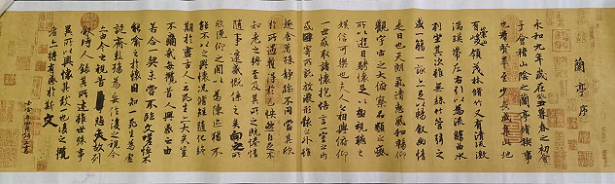 蘭亭序
永和九年歲在癸丑暮春之初會
于會稽山陰之蘭亭脩稧事
也群賢畢至少長咸集此地
有崇山峻領茂林脩竹又有清流激
湍暎帶左右引以為流觴曲水
列坐其次雖無絲竹管弦之
盛一觴一詠亦足以暢敘幽情
是日也天朗氣清惠風和暢仰
觀宇宙之大俯察品類之盛
所以遊目騁懷足以極視聽之
娛信可樂也夫人之相與俯仰
一世或取諸懷抱悟言一室之內
或因寄所託放浪形骸之外雖
趣舍萬殊靜躁不同當其欣
於所遇蹔得於己怏然自足不
知老之將至及其所之既惓情
隨事遷感慨係之矣向之所
欣俛仰之間以為陳迹猶不
能不以之興懷況脩短隨化終
期於盡古人云死生亦大矣豈
不痛哉每攬昔人興感之由
若合一契未嘗不臨文嗟悼不
能喻之於懷固知一死生為虛
誕齊彭殤為妄作後之視今
亦由今之視昔悲夫故列
敘時人錄其所述雖世殊事
異所以興懷其致一也後之攬
者亦將有感於斯文